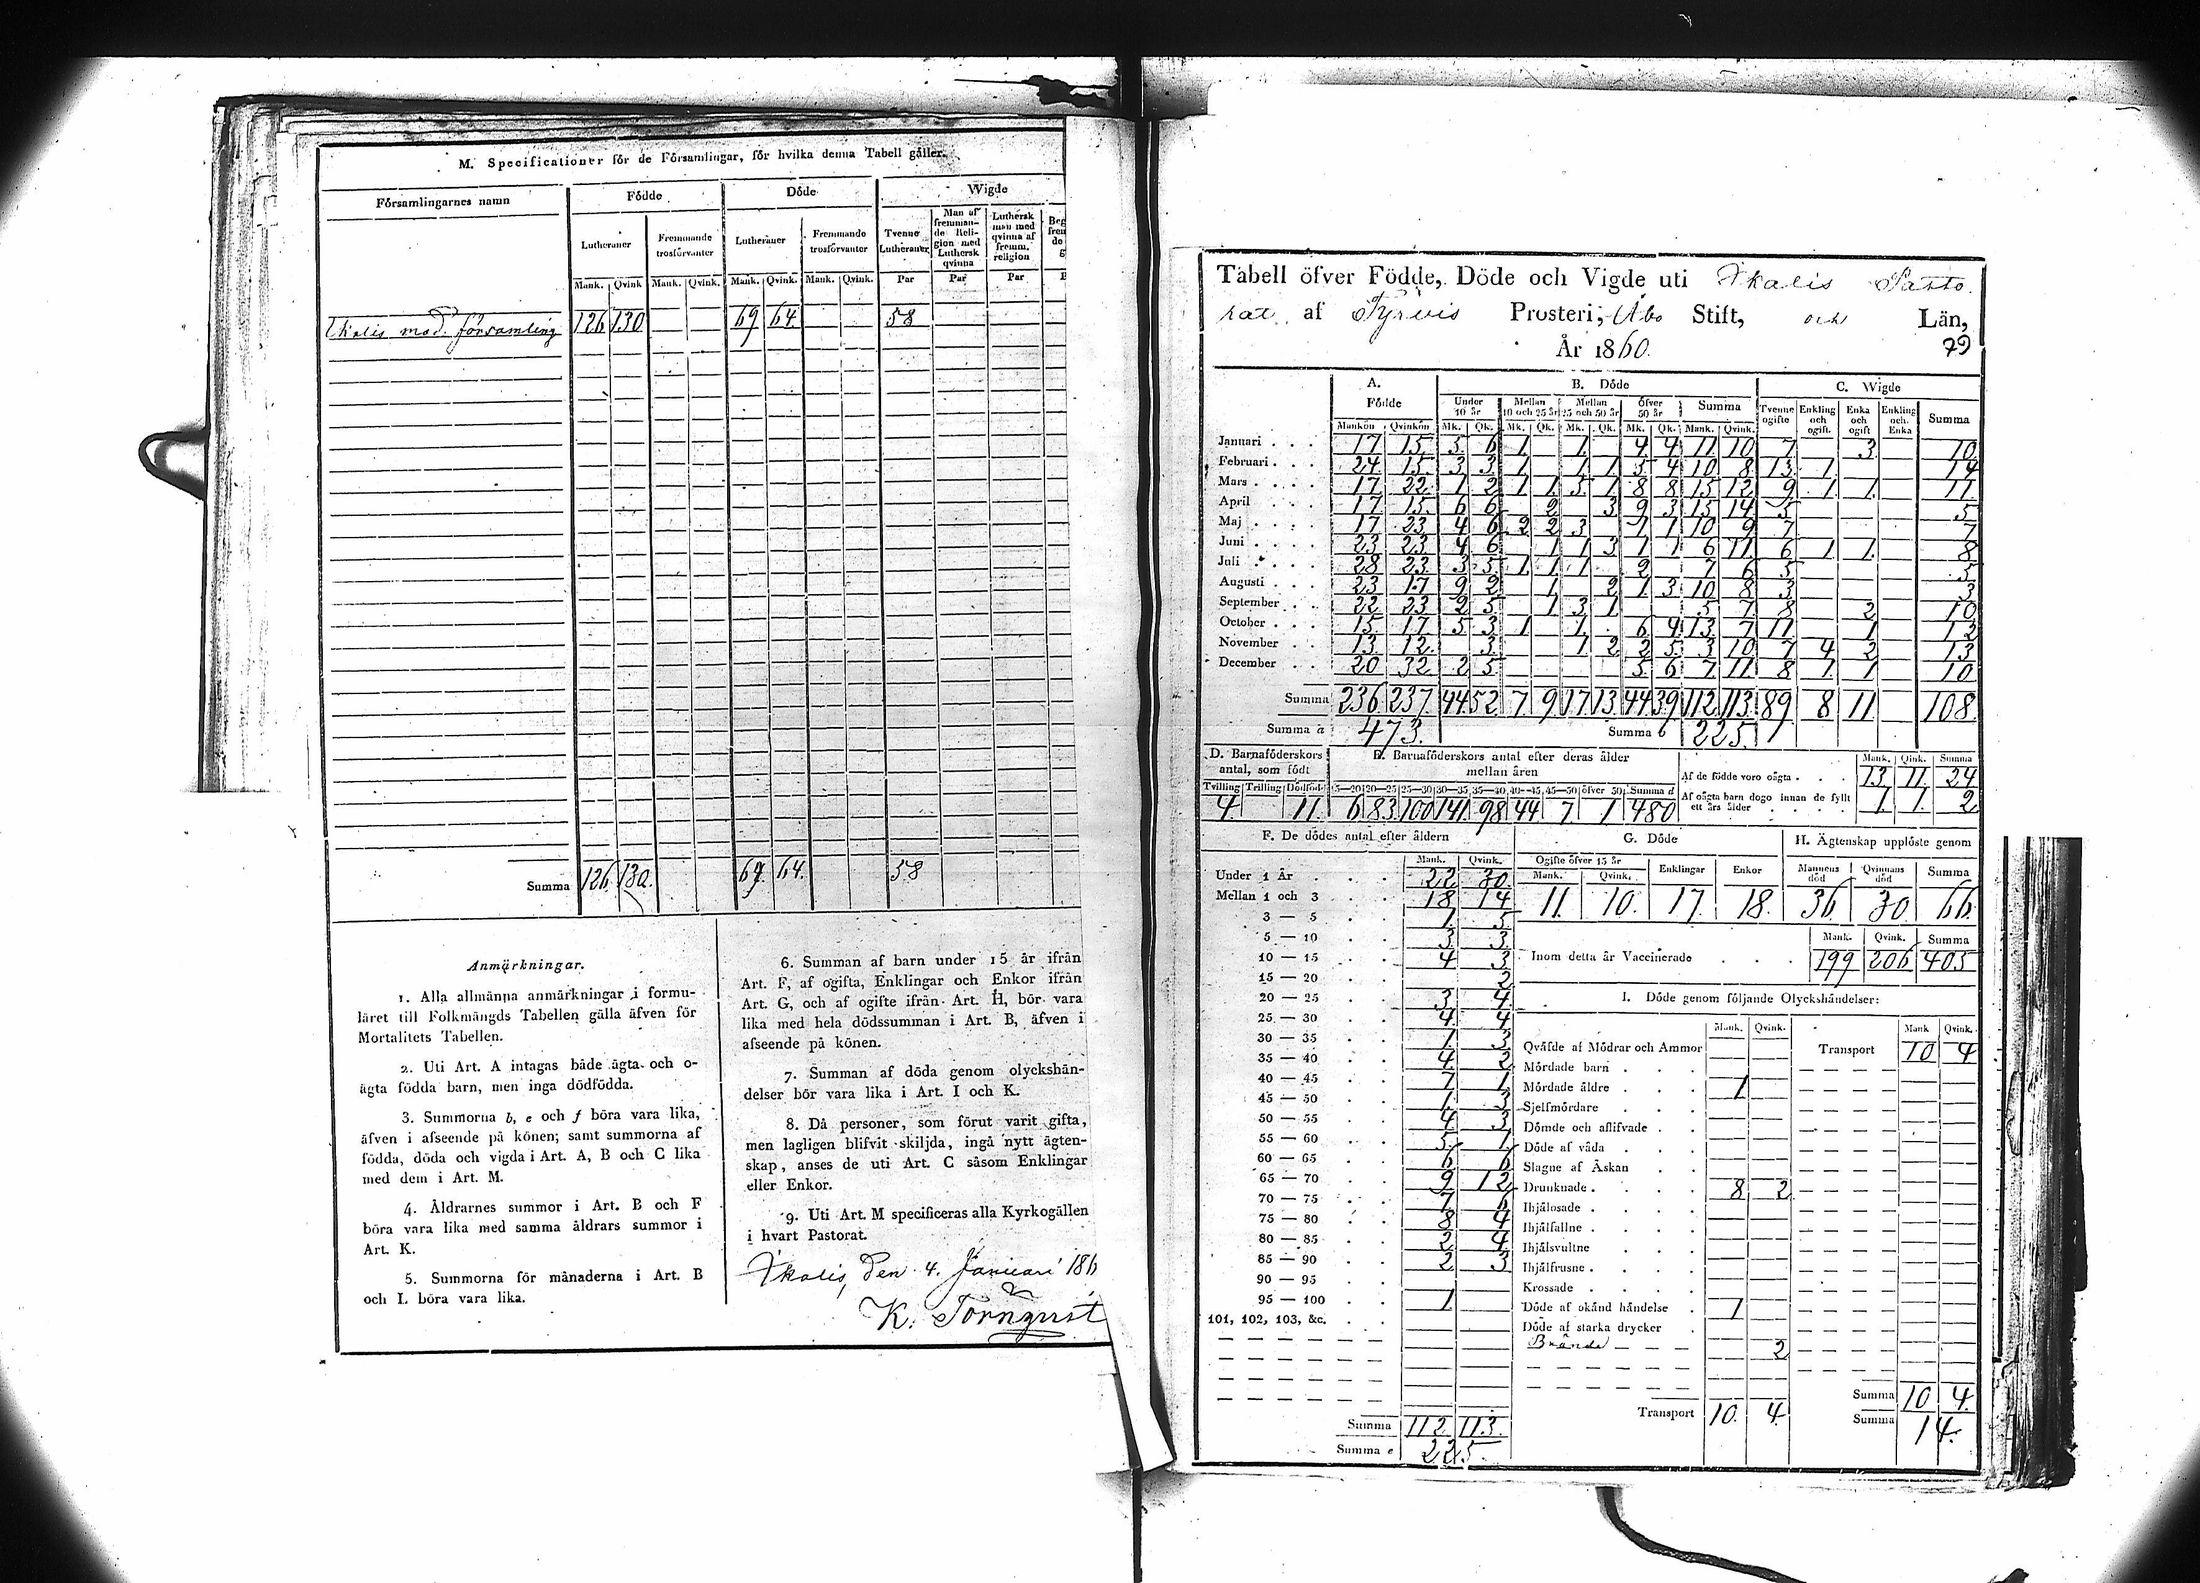 M. Specificationer för de Församlingar, för hvilka denna Tabell gäller.
Församlingarnes namn | Födde | Döde | Wigde
Lutheraner | Fremmande trosförvanter | Lutheraner | Fremmande trosförvanter | Tvenne Lutheraner | Man af fremmande Religion med Luthersk qvinna | Luthersk man med qvinna af fremm. religion
Mank. | Qvink | Mank. | Qvink. | Mank. | Qvink. | Mank. | Qvink. | Par | Par | Par
Ikalis mod. församling 126 130 69 64 58
Summa 126 130. 69. 64. 58
Anmärkningar.
1. Alla allmänna anmärkningar i formu-
läret till Folkmängds Tabellen gälla äfven för
Mortalitets Tabellen.
2. Uti Art. A intagas både ägta och o-
ägta födda barn, men inga dödfödda.
3. Summorna b, e och f böra vara lika,
äfven i afseende på könen; samt summorna af
födda, döda och vigda i Art. A, B och C lika
med dem i Art. M.
4. Åldrarnes summor i Art. B och F
böra vara lika med samma åldrars summor i
Art. K.
5. Summorna för månaderna i Art. B
och L böra vara lika.
6. Summan af barn under 15 år ifrån
Art. F, af ogifta, Enklingar och Enkor ifrån
Art. G, och af ogifte ifrån Art. H, bör vara
lika med hela dödssumman i Art. B, äfven i
afseende på könen.
7. Summan af döda genom olyckshän-
delser bör vara lika i Art. I och K.
8. Då personer, som förut varit gifta,
men lagligen blifvit skiljda, ingå nytt ägten-
skap, anses de uti Art. C såsom Enklingar
eller Enkor.
9. Uti Art. M specificeras alla Kyrkogällen
i hvart Pastorat.
Ikalis, den 4. Januari 186
K. Törnqvist
Tabell öfver Födde, Döde och Vigde uti Ikalis Pasto
rat af Tyrvis Prosteri, Åbo Stift, och Län,
År 1860. 79
A. Födde | B. Döde | C. Wigde
Under 10 år | Mellan 10 och 25 år | Mellan 25 och 50 år | Öfver 50 år | Summa | Tvenne ogifte | Enkling och ogift. | Enka och ogift | Enkling och Enka | Summa
Mankön | Qvinkön | Mk. | Qk. | Mk. | Qk. | Mk. | Qk. | Mk. | Qk. | Mank. | Qvink.
Januari 17 15 5 6 1 1 4 4 11 10 7 3 10
Februari 24 15 3 3 1 1 1 5 4 10 8 13 1 14
Mars 17 22 1 2 1 1 5 1 8 8 15 12 9 1 1 11
April 17 15 6 6 2 3 9 3 15 14 5 5
Maj 17 23 4 6 2 2 3 1 1 10 9 7 7
Juni 23 23 4 6 1 1 3 1 1 6 11 6 1 1 8
Juli 28 23 3 5 1 1 1 2 7 6 5 5
Augusti 23 17 9 2 1 2 1 3 10 8 3 3
September 22 23 2 5 1 3 1 5 7 8 2 10
October 15 17 5 3 1 1 6 4 13 7 11 1 12
November 13 12 3 1 2 2 5 3 10 7 4 2 13
December 20 32 2 5 5 6 7 11 8 1 1 10
Summa 236 237 44 52 7 9 17 13 44 39 112 113 89 8 11 108
Summa a 473. Summa b 225.
D. Barnaföderskors antal, som födt
Tvilling | Trilling | Dödfödt
4. 11.
E. Barnaföderskors antal efter deras ålder mellan åren
15—20 | 20—25 | 25—30 | 30—35 | 35—40 | 40—45 | 45—50 | öfver 50 | Summa d
6 83 100 141 98 44 7 1 480
Mank. | Qink. | Summa
Af de födde voro oägta 13. 11. 24
Af oägta barn dogo innan de fyllt ett års ålder 1. 1. 2
F. De dödes antal efter åldern
Mank. | Qvink.
Under 1 År 22 30
Mellan 1 och 3 18 14
3 — 5 1. 5
5 — 10 3 3
10 — 15 4 3
15 — 20 2
20 — 25 3 4
25 — 30 4 4
30 — 35 1 3
35 — 40 4 2
40 — 45 7 1
45 — 50 1 3
50 — 55 4 3
55 — 60 5 1
60 — 65 6 6
65 — 70 9 12
70 — 75 7 6
75 — 80 8 4
80 — 85 2 4
85 — 90 2 3
90 — 95
95 — 100 1
101, 102, 103, &c.
Summa 112 113.
Summa e 225.
G. Döde
Ogifte öfver 15 år | Enklingar | Enkor
Mank. | Qvink.
11. 10. 17. 18.
H. Ägtenskap upplöste genom
Mannens död | Qvinnans död | Summa
36 30 66
Mank. | Qvink. | Summa
Inom detta år Vaccinerade 199 206 405
I. Döde genom följande Olyckshändelser:
Mank. | Qvink. | Mank | Qvink.
Qväfde af Mödrar och Ammor
Transport 10 4
Mördade barn
Mördade äldre 1
Sjelfmördare
Dömde och aflifvade
Döde af våda
Slagne af Åskan
Drunknade 8 2
Ihjälosade
Ihjälfallne
Ihjälsvultne
Ihjälfrusne
Krossade
Döde af okänd händelse 1
Döde af starka drycker
Brände 2
Transport 10. 4
Summa 10 4.
Summa 14.